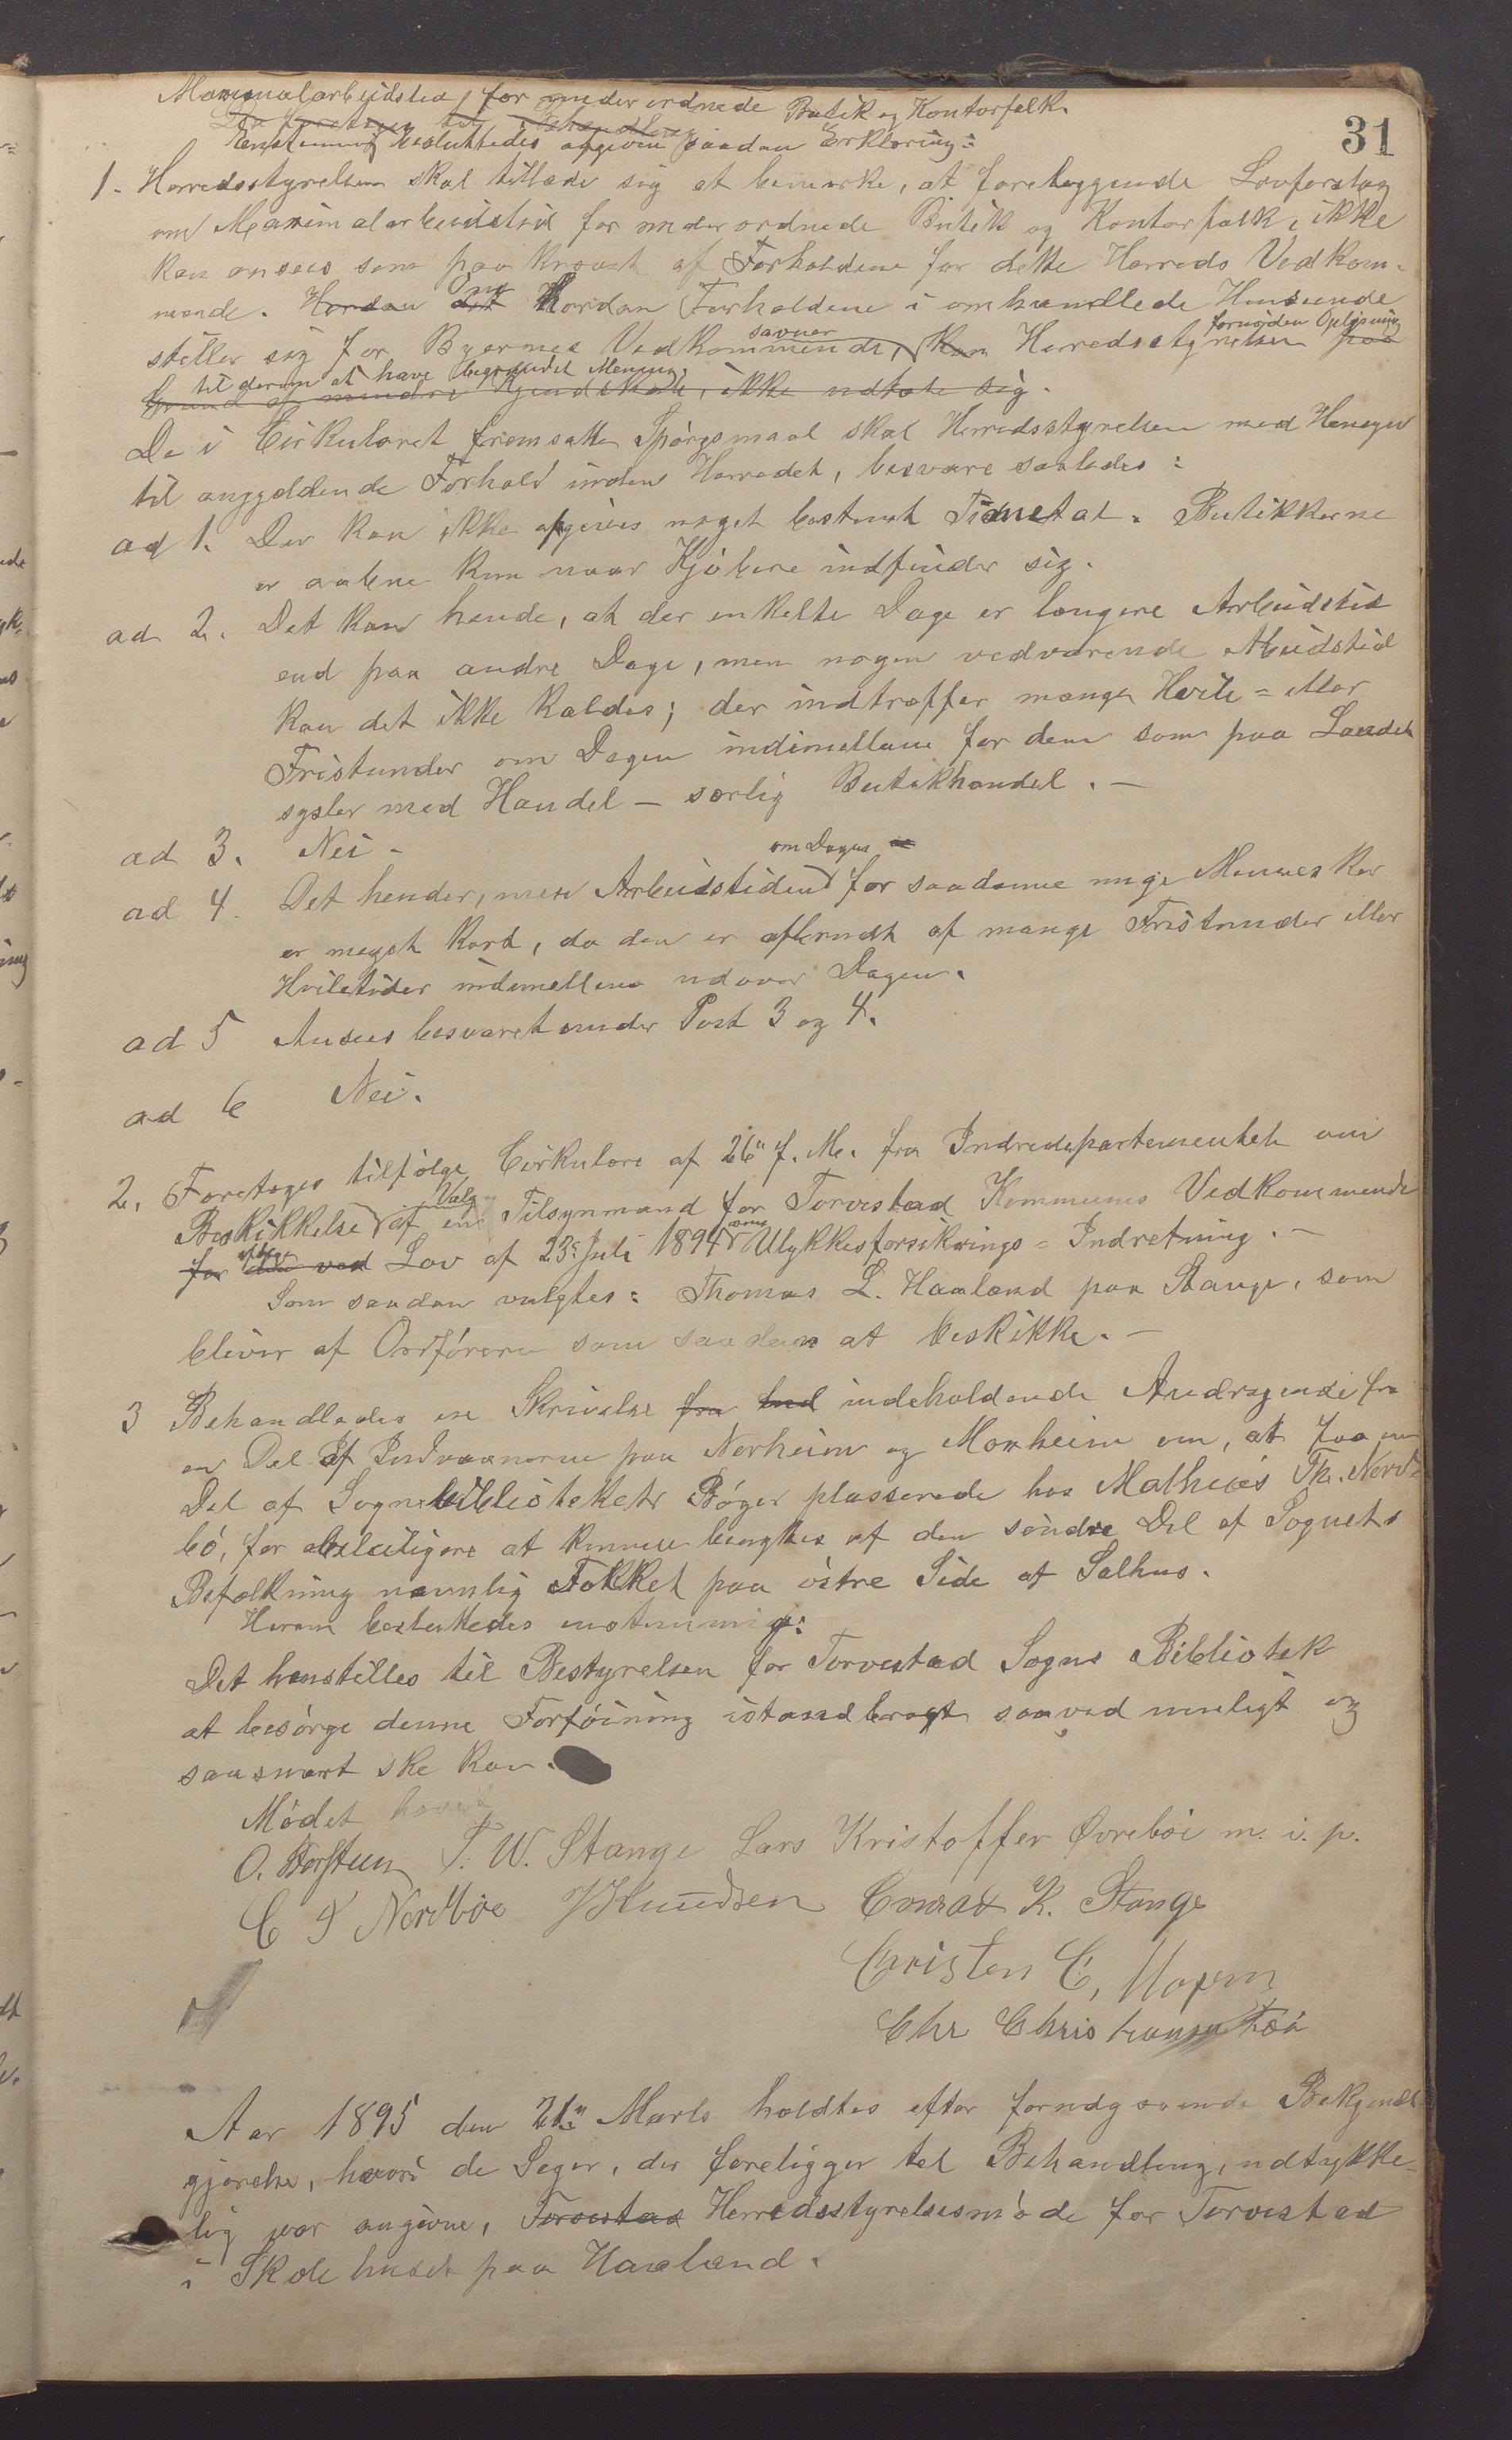 31
Maximalarbeidstid for underordnede Butik og Kontorfolk.
Enstemmig besluttedes afgiven saadan Erklæring:
1. Herredsstyrelsen skal tillade sig at bemærke, at foreliggende Lovforslag
om Maximalarbeidstid for underordnede Butik og Kontorfolk, ikke
kan ansees som paa krævet af Forholdene for dette Herreds Vedkom-
mende. Hvordan Forholdene i omhandlede Henseende
stiller sig for Byernes Vedkommende, savner Herredsstyrelsen fornøden Oplysning paa
til derom at have begrundet Mening.
Grund af mindre Kjendskab, ikke udtale sig.
De i Cirkulæret fremsatte Spørgsmaal skal Herredsstyrelsen med Hensyn
til angjældende Forhold inden Herredet, besvare saaledes:
ad 1. Der kan ikke opgives noget bestemt Timetal. Butikkerne
er aabne kun naar Kjøbere indfinder sig.
ad 2. Det kan hende, at der enkelte Dage er længere Arbeidstid
end paa andre Dage, men nogen vedvarende Arbeidstid
kan det ikke kaldes; der indtræffer mange Hvile= eller
Fristunder om Dagen indimellem for dem som paa Landet
sysler med Handel — særlig Butikhandel. —
ad 3. Nei -
ad 4. Det hender, men Arbeidstiden om Dagen for saadanne unge Mennesker
er meget kort, da den er afbrudt af mange Fristunder eller
Hviletider indimellem udover Dagen.
ad 5 Ansees besvaret under Post 3 og 4.
ad 6 Nei.
2. Foretoges tilfølge Cirkulære af 26" f. M. fra Indredepartementet om
Beskikkelse Valg af en Tilsynmand for Torvestad Kommunes Vedkommende
for efter Lov af 23e Juli 1894 om Ulykkesforsikrings=Indretning. —
Som saadan valgtes: Thomas L. Haaland paa Stange, som
bliver af Ordføreren som saadan at beskikke. —
3 Behandledes en Skrivelse fra indeholdende Andragende fra
en Del af Indvaanerne paa Norheim og Moxheim om, at faa en
Del af Sognebibliotekets Bøger plasserede hos Mathias Th. Nord-
bø, for at beleiligere at kunne benyttes af den søndre Del af Sognets
Befolkning navnlig Folket paa østre Side af Salhus.
Herom besluttedes enstemmig:
Det henstilles til Bestyrelsen for Torvestad Sogns Bibliotek
at besørge denne Forføining istandbragt saaved muligt og
saasnart ske kan.
Mødet hævet
O. Storsteen T. W. Stange Lars Kristoffer Øvrebøe m. i. p.
C T Nordbøe J Knudsen Conrad K. Stange
Christen C,
Chr Christiansen
Aar 1895 den 21de Marts holdtes efter forudgaaende Bekjendt-
gjørelse, hvori de Sager, der foreligger til Behandling, udtrykke-
lig var angivne, Torvestad Herredsstyrelsesmøde for Torvestad
i Skolehuset paa Haaland.